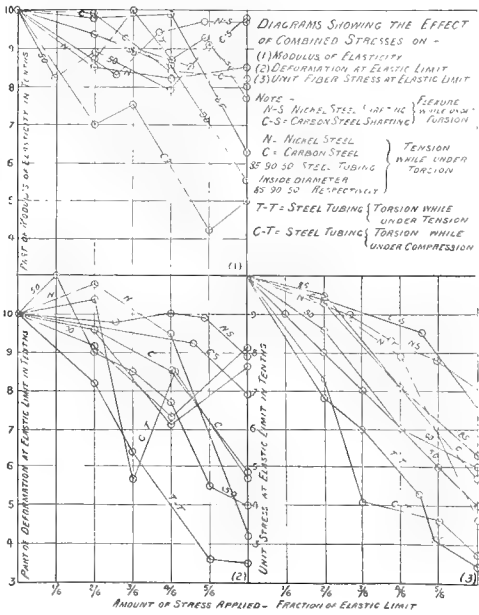 DIAGRAMS SHOWING THE EFFECT
OF COMBINED STRESSES ON -
(1) MODULUS OF ELASTICITY
(2) DEFORMATION AT ELASTIC LIMIT
(3) UNIT FIBER STRESS AT ELASTIC LIMIT
NOTE -
N-S NICKEL STEEL SHAFTING } FLEXURE
C-S = CARBON STEEL SHAFTING } WHILE UNDER
TORSION
N- NICKEL STEEL
C = CARBON STEEL
85 90 50 STEEL TUBING
INSIDE DIAMETER
85 90 50 RESPECTIVELY
} TENSION
WHILE UNDER
TORSION
T-T = STEEL TUBING { TORSION WHILE
UNDER TENSION
C-T = STEEL TUBING { TORSION WHILE
UNDER COMPRESSION
PART OF MODULUS OF ELASTICITY IN TENTHS
10
9
8
7
6
5
4
N-S
C-T
(1)
PART OF DEFORMATION AT ELASTIC LIMIT IN TENTHS
10
9
8
7
6
5
4
3
50
N
N
NS
CS
C
C
C-T
T-T
(2)
UNIT STRESS AT ELASTIC LIMIT IN TENTHS
85
C-S
NS
T-T
(3)
1/6 2/6 3/6 4/6 5/6 1/6 2/6 3/6 4/6 5/6
AMOUNT OF STRESS APPLIED - FRACTION OF ELASTIC LIMIT